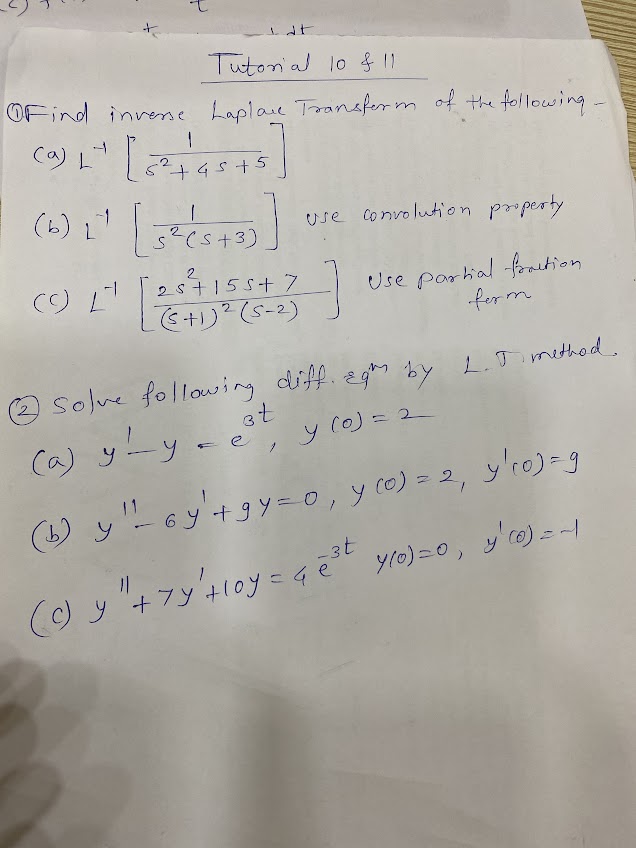 t
Tutorial 10 & 11
① Find inverse Laplace Transform of the following -
(a) L⁻¹ [ 1 / s² + 4s + 5 ]
(b) L⁻¹ [ 1 / s²(s+3) ] use convolution property
(c) L⁻¹ [ 2s² + 15s + 7 / (s+1)² (s-2) ] use partial fraction
form
② Solve following diff. eqⁿ by L.T. method.
(a) y' - y = e³ᵗ, y(0) = 2
(b) y'' - 6y' + 9y = 0, y(0) = 2, y'(0) = 9
(c) y'' + 7y' + 10y = 4e⁻³ᵗ y(0) = 0, y'(0) = -1